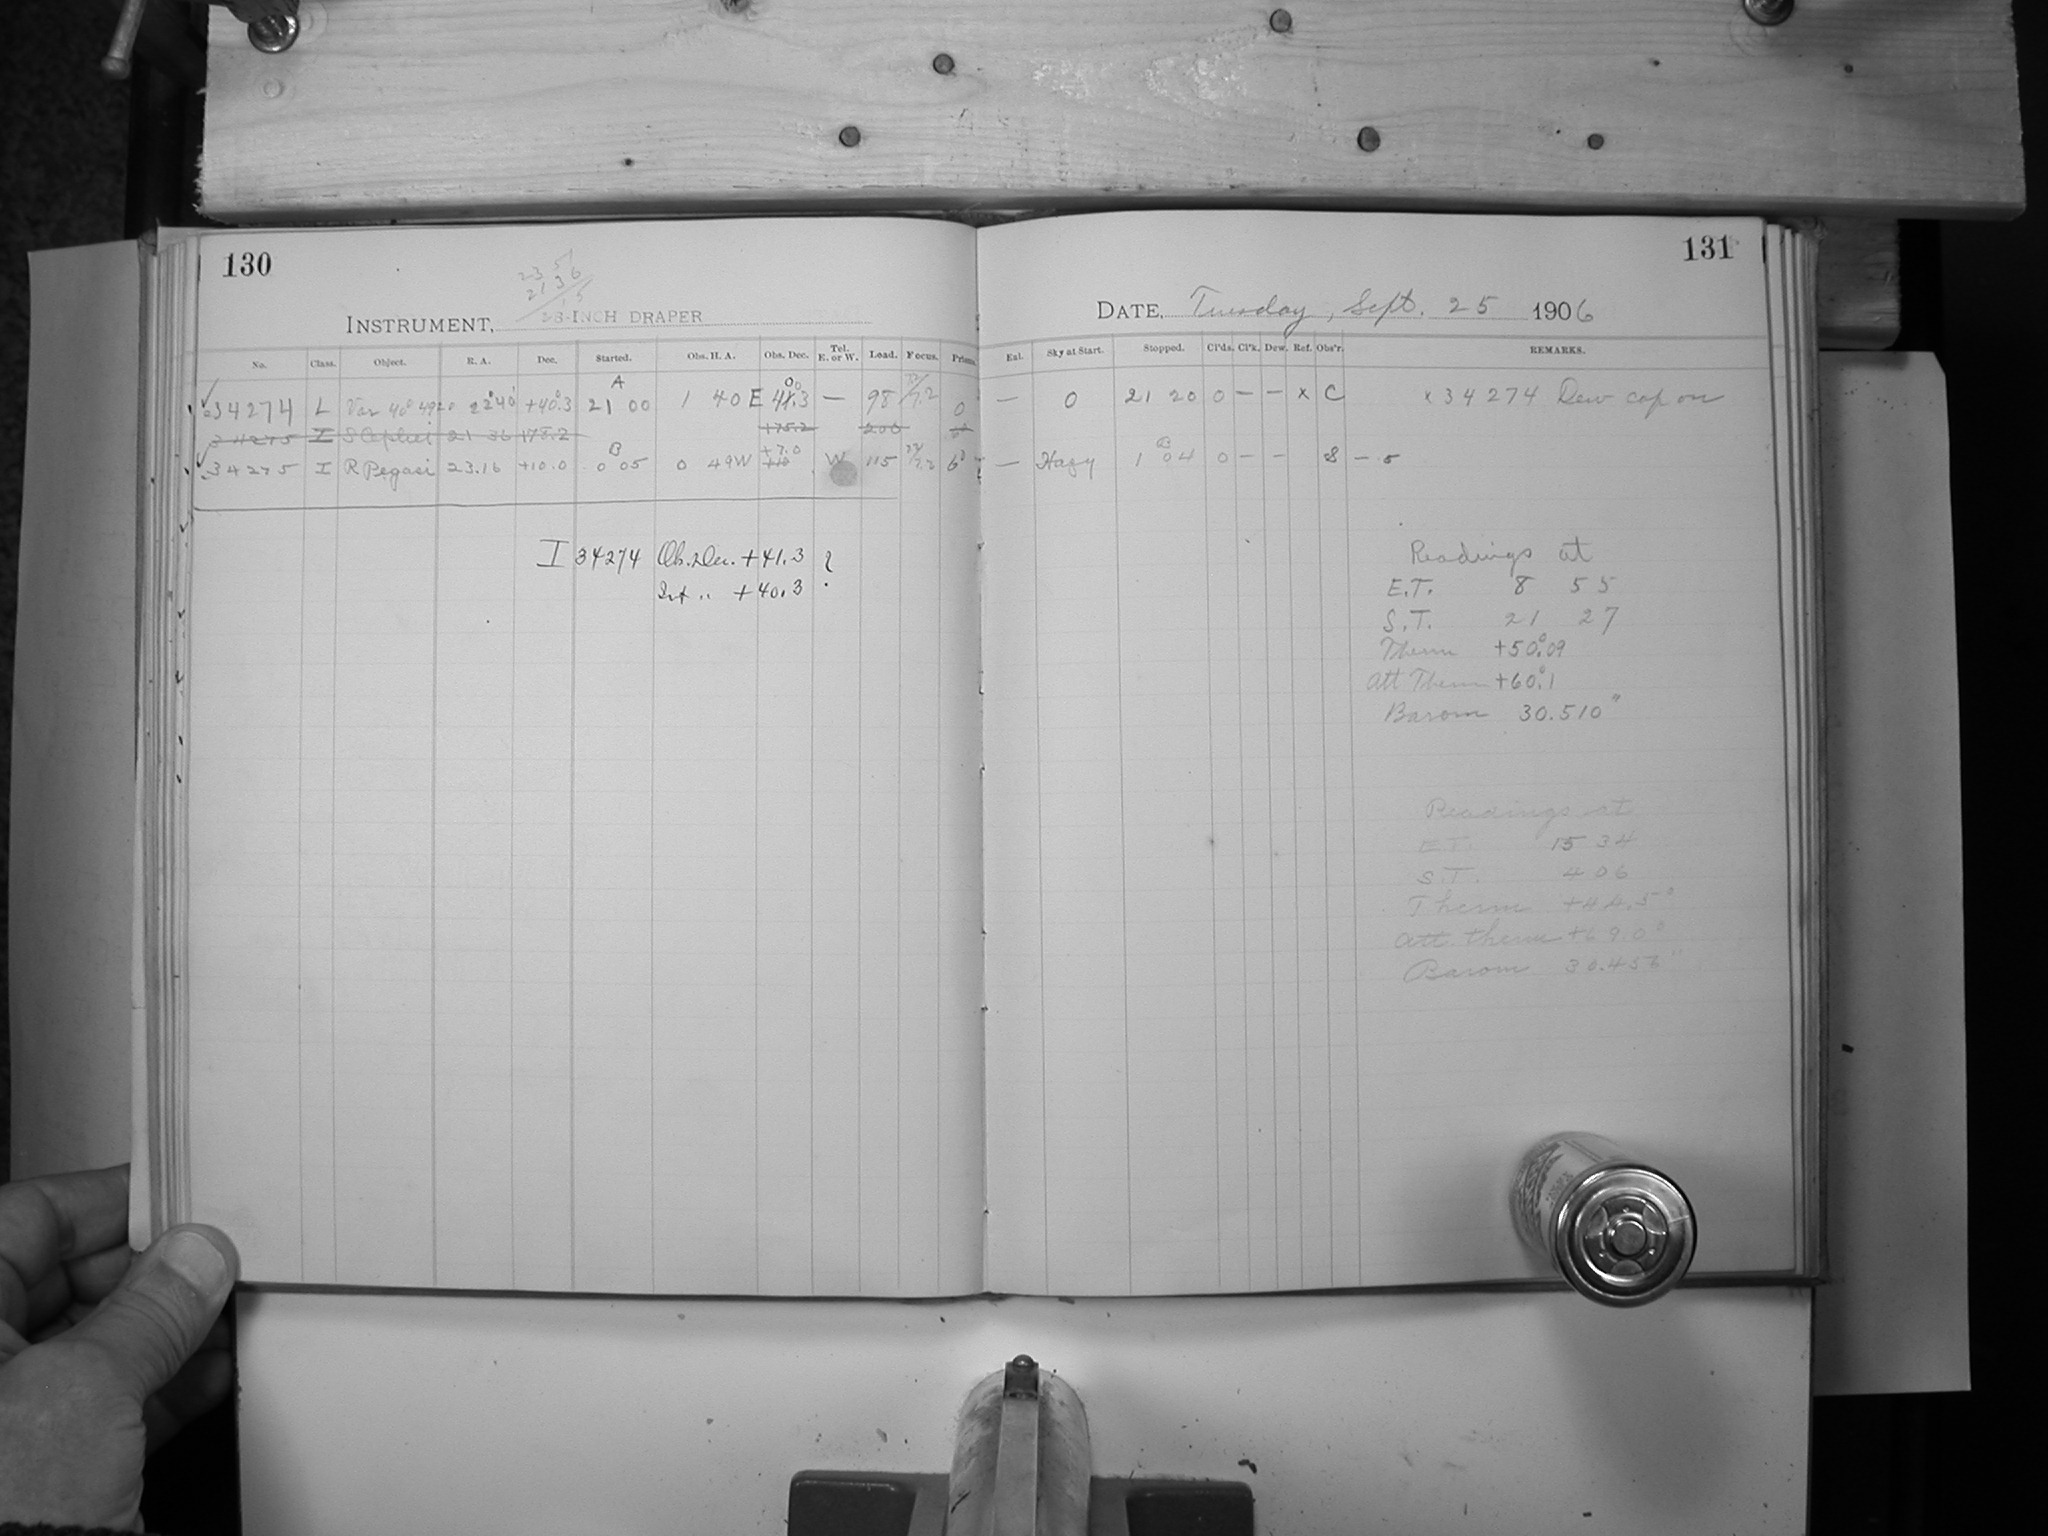 130
23 51
21 36
15
INSTRUMENT, 8-INCH DRAPER
No. Class. Object. R. A. Dec. Started. Obs. H. A. Obs. Dec. Tel. E. or W. Load. Focus. Prisms
34274 L Var 40° 4920 22 40 +40.3 A 21 00 1 40 E 41.3 — 98 7.2 0
34275 I S Cephei 21 36 +78.2 +78.2 200
34275 I R Pegasi 23.16 +10.0 B 0 05 0 49W +7.0 +10 W 115 7.2 6°
I 34274 Ob. Dec. +41.3 ?
Int " +40.3
131
DATE, Tuesday, Sept. 25 1906
Eal. Sky at Start. Stopped. Cl'ds. Cl'k. Dew. Ref. Obs'r. REMARKS.
— 0 21 20 0 — — x C x 34274 Dew cap on
— Hazy B 1 04 0 — — S — 5
Readings at
E.T. 8 55
S.T. 21 27
Therm +50.°09
Att Therm +60.°1
Barom 30.510"
Readings at
E.T. 15 34
S.T. 4 06
Therm +44.5°
Att. therm +69.0°
Barom 30.456"